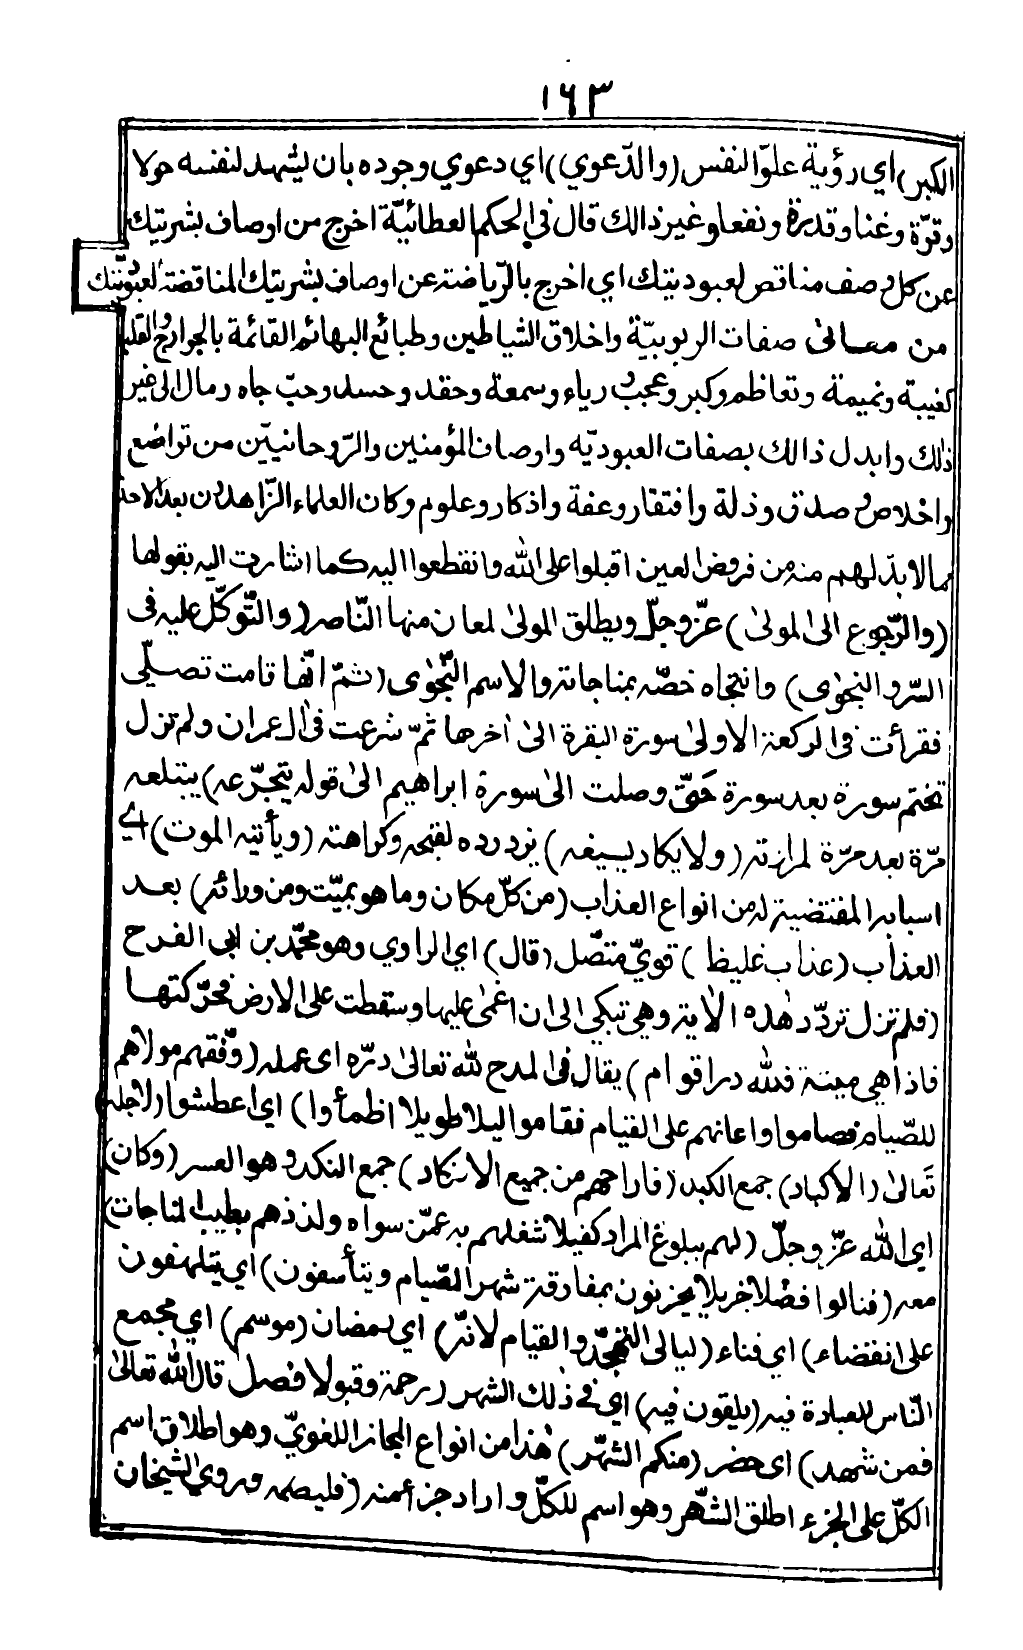 ١٦٣
الكبر) اي رؤية علوّ النفس (والدّعوي) اي دعوي وجوده بان يشهد لنفسه حولا
وقوّة وغنا وقدرة ونفعا وغير ذالك قال في الحكم العطائيّة اخرج من اوصاف بشريتك
عن كل وصف مناقص لعبوديتك اي اخرج بالرّياضة عن اوصاف بشريتك المناقضة لعبوديّتك
من معانى صفات الربوبيّة واخلاق الشياطين وطبائع البهائم القائمة بالجوارح والقلب
كغيبة ونميمة وتعاظم وكبر وعجب ورياء وسمعة وحقد وحسد وحبّ جاه ومال الى غير
ذلك وابدل ذالك بصفات العبوديّه واوصاف المؤمنين والرّوحانيّين من تواضع
واخلاص وصدق وذلة وافتقار وعفة واذكار وعلوم وكان العلماء الزّاهدون بعد الاخذ
مالا بدّ لهم منه من فروض العين اقبلوا على الله وانقطعوا اليه كما اشارت اليه بقولها
(والرّجوع الى المولى) عزّ وجلّ ويطلق المولى لمعان منها النّاصر (والتّوكّل عليه فى
السّر والنجوى) وانتجاه خصّه بمناجاته والاسم النّجوٰى (ثمّ انّها قامت تصلّى
فقرأت فى الركعة الاولى سورة البقرة الى اٰخرها ثمّ شرعت فى اٰل عمران ولم تزل
تختم سورة بعد سورة حَتّى وصلت الى سورة ابراهيم الى قوله يتجرّعه) يبتلعه
مرّة بعد مرّة لمرارته (ولا يكاد يسيغه) يزدرده لقبحه وكراهته (ويأتيه الموت) اي
اسبابه المقتضية له من انواع العذاب (من كلّ مكان وما هو بميّت ومن ورائه) بعد
العذاب (عذاب غليظ) قويّ متّصل (قال) اي الراوي وهو محمّد بن ابى الفرح
(فلم تزل تردّد هٰذه الاٰية وهي تبكي الى ان اغمى عليها وسقطت على الارض فحرّكتها
فاذا هي ميتة فلله در اقوام) يقال فى المدح لله تعالى درّه اى عمله (وفّقهم مولاهم
للصّيام فصاموا واعانهم على القيام فقاموا ليلا طويلا اظمأوا) اي اعطشوا (لاجله)
تَعالىٰ (الاكباد) جمع الكبد (فاراحهم من جميع الانكاد) جمع النكد وهو العسر (وكان)
اي الله عزّ وجلّ (لهم ببلوغ المراد كفيلا شغلهم به عمّن سواه ولذذهم بطيب المناجات)
معه (فنالوا فضلا جزيلا يحزنون بمفارقة شهر الصّيام ويتأسفون) اي يتلهفون
على انقضاء) اي فناء (ليالى التّهجّد والقيام لانّه) اي رمضان (موسم) اي مجمع
النّاس للعبادة فيه (يلقون فيه) اي في ذلك الشهر (رحمة وقبولا فصل قال الله تعالى
فمن شهد) اى حضر (منكم الشهر) هٰذا من انواع المجاز اللغويّ وهو اطلاق اسم
الكلّ على الجزء اطلق الشّهر وهو اسم للكلّ واراد جزءا منه (فليصمه وروي الشيخان